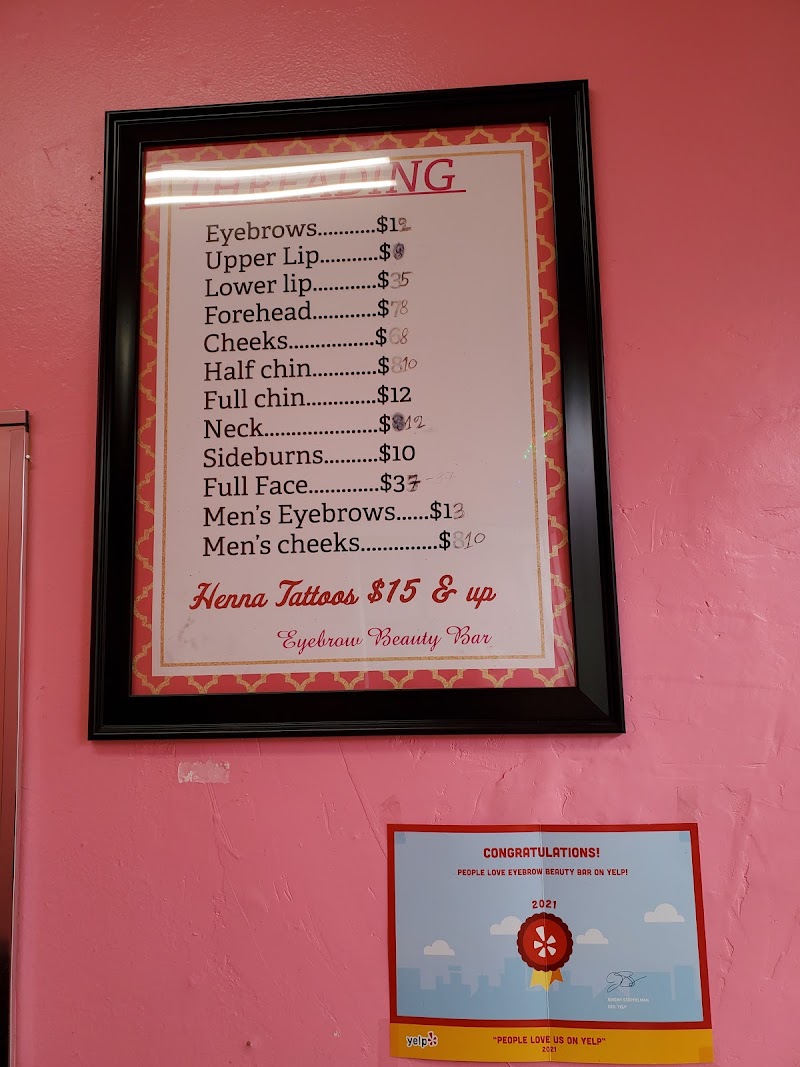 THREADING
Eyebrows...........$12
Upper Lip...........$9
Lower lip............$5
Forehead............$8
Cheeks.................$8
Half chin............$10
Full chin.............$12
Neck......................$12
Sideburns..........$10
Full Face.............$37
Men's Eyebrows......$13
Men's cheeks...............$10
Henna Tattoos $15 & up
Eyebrow Beauty Bar
CONGRATULATIONS!
PEOPLE LOVE EYEBROW BEAUTY BAR ON YELP!
2021
JEREMY STOPPELMAN
CEO, YELP
yelp
"PEOPLE LOVE US ON YELP"
2021